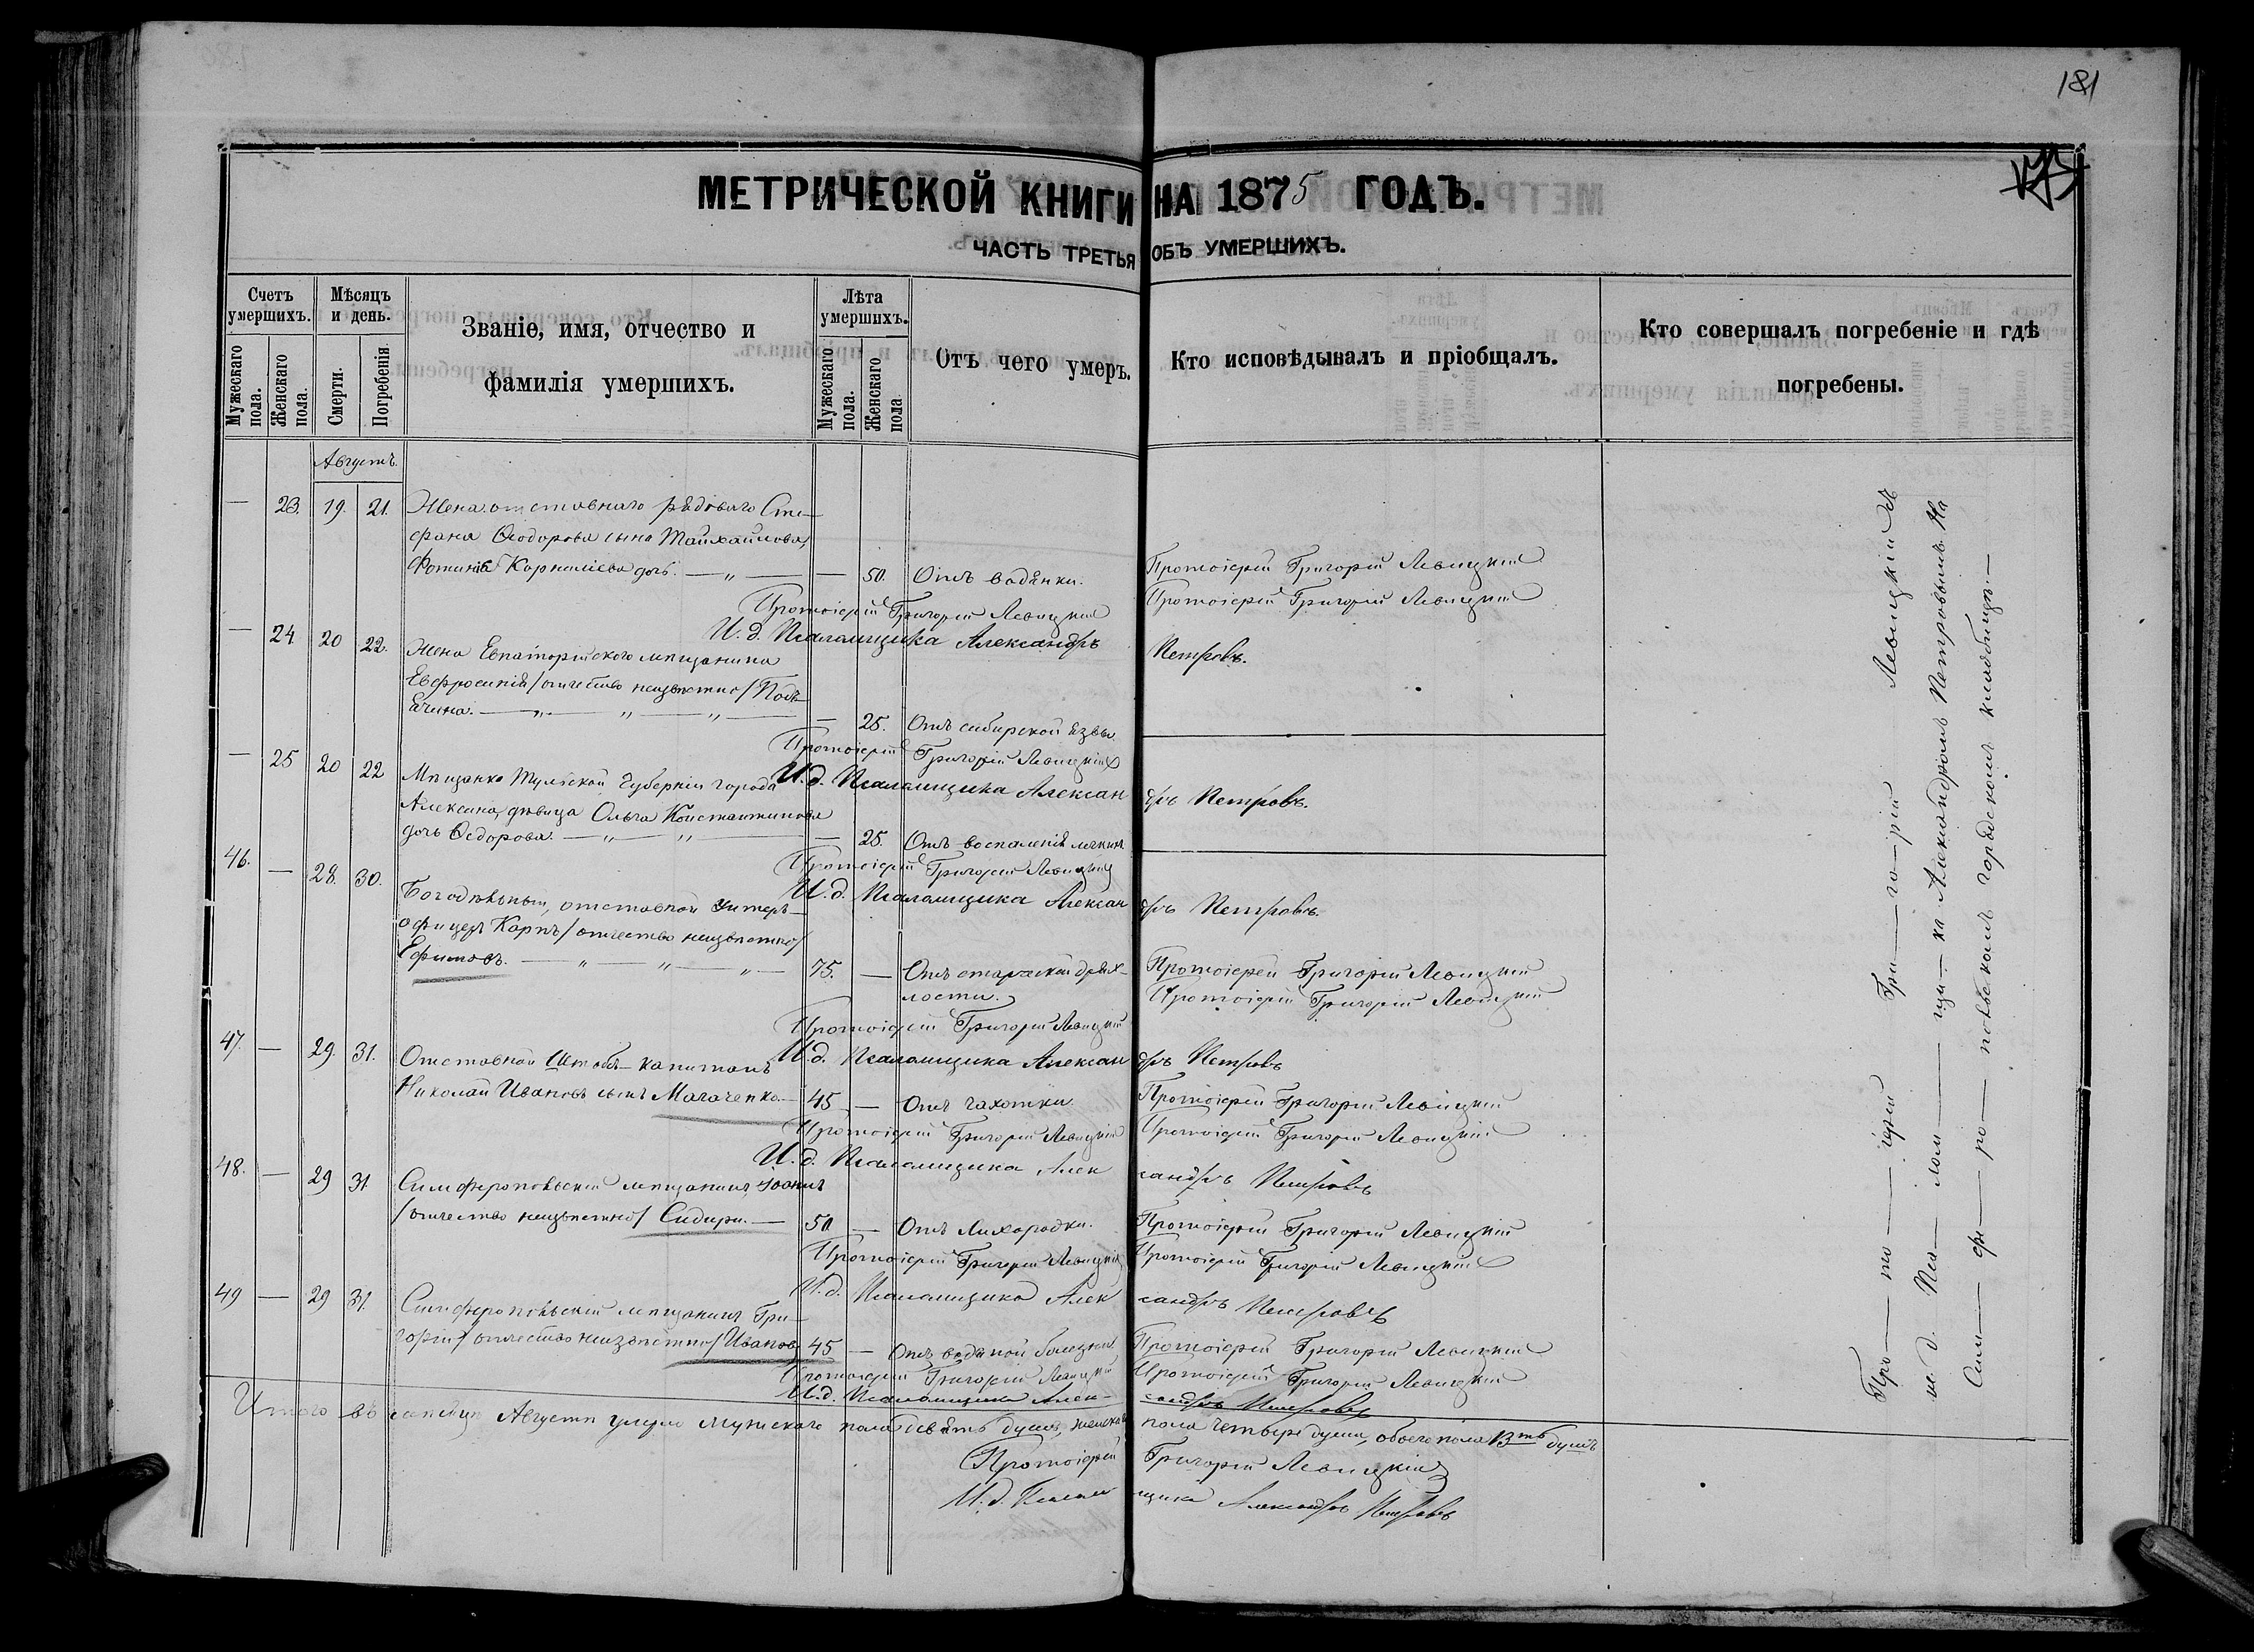 181
МЕТРИЧЕСКОЙ КНИГИ НА 1875 ГОДЪ.
ЧАСТЬ ТРЕТЬЯ ОБЪ УМЕРШИХЪ.
Счетъ умершихъ.
Мужескаго пола.
Женскаго пола.
Мѣсяцъ и день.
Смерти.
Погребенія
Званіе, имя, отчество и
фамилія умершихъ.
Лѣта умершихъ.
Мужескаго пола.
Женскаго пола
Отъ чего умеръ.
Кто исповѣдывалъ и пріобщалъ.
Кто совершалъ погребеніе и гдѣ
погребены.
Августъ.
— 23. 19. 21. Жена отставнаго рядоваго Сте-
фана Ѳеодорова сына
Фотинія Корниліева дочь. — „ — — 50. Отъ водянки. Протоіерей Григорій Левицкій
Протоіерей Григорій Левицкій Протоіерей Григорій Левицкій
— 24 20 22. И. д. Псаломщика Александръ Петровъ.
Жена Евпаторійского мѣщанина
Евфросинія /отчество неизвѣстно/
— „ — „ — „ — — 25. Отъ сибирской язвы.
Протоіерей Григорій Левицкій
— 25 20 22 И. д. Псаломщика Александръ Петровъ.
Мѣщанка Тульской Губерніи города
Алексина, дѣвица Ольга Константинова
дочь Ѳедорова. — „ — „ — — 25. Отъ воспаленія легкихъ
Протоіерей Григорій Левицкій
46. — 28. 30. И. д. Псаломщика Александръ Петровъ.
Богодѣльный, отставной Унтеръ-
офицеръ Карпъ /отчество неизвѣстно/
Ефимовъ. — „ — „ — „ — 75. — Отъ старческой дрях- Протоіерей Григорій Левицкій
лости. Протоіерей Григорій Левицкій
Протоіерей Григорій Левицкій
47. — 29. 31. И. д. Псаломщика Александръ Петровъ
Отставной Штабъ-капитанъ
Николай Ивановъ сынъ Магаченко. — 45 — Отъ чахотки. Протоіерей Григорій Левицкій
Протоіерей Григорій Левицкій Протоіерей Григорій Левицкій
48. — 29 31 И. д. Псаломщика Александръ Петровъ
Симферопольскій мѣщанинъ Іоаннъ
/отчество неизвѣстно/ Сидири. — 50 — Отъ Лихорадки. Протоіерей Григорій Левицкій
Протоіерей Григорій Левицкій Протоіерей Григорій Левицкій
49 — 29 31. И. д. Псаломщика Александръ Петровъ
Симферопольскій мѣщанинъ Гри-
горій /отчество неизвѣстно/ Ивановъ 45 — Отъ водяной болезни Протоіерей Григорій Левицкій
Протоіерей Григорій Левицкій Протоіерей Григорій Левицкій
И. д. Псаломщика Алек- сандръ Петровъ
Итого въ Августѣ умерло Мужскаго пола девять душъ, женскаго пола четыре души, обоего пола 13ть душъ
Протоіерей Григорій Левицкій
И. д. Псаломщика Александръ Петровъ
Про— то— іерей Гри— го— рій Левицкій съ
и. д. Пса— лом— щи— ка Александромъ Петровымъ. На
Сим— фе— ро— польскомъ городскомъ кладбищѣ. —